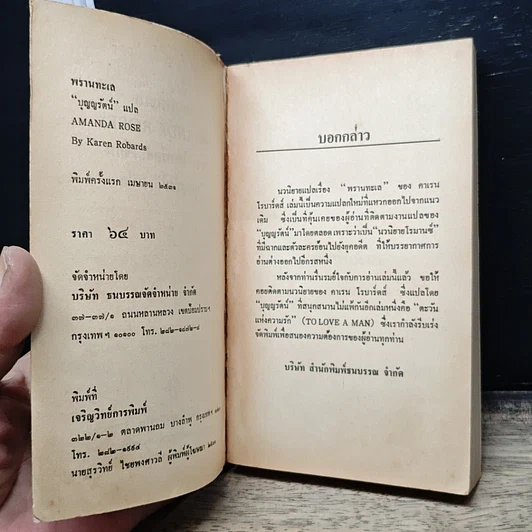 พรานทะเล
"บุญญรัตน์" แปล
AMANDA ROSE
By Karen Robards
พิมพ์ครั้งแรก เมษายน ๒๕๓๑
ราคา ๖๕ บาท
จัดจำหน่ายโดย
บริษัท ธนบรรณจัดจำหน่าย จำกัด
๓๗-๓๗/๑ ถนนหลานหลวง เขตป้อมปราบฯ
กรุงเทพฯ ๑๐๑๐๐ โทร.
พิมพ์ที่
เจริญวิทย์การพิมพ์
๓๒๒/๑-๒ ตลาดพานถม บางลำพู กรุงเทพฯ
โทร. ๒๘๒-๑๙๙๔
นายสุรวิทย์ ไชยพงศาวลี ผู้พิมพ์ผู้โฆษณา ๒๕๓๑
บอกกล่าว
นวนิยายแปลเรื่อง "พรานทะเล" ของ คาเรน
โรบาร์ดส์ เล่มนี้เป็นความแปลกใหม่ที่แหวกออกไปจากแนว
เดิม ซึ่งเป็นที่คุ้นเคยของผู้อ่านที่ติดตามงานแปลของ
"บุญญรัตน์" มาโดยตลอด เพราะว่าเป็น "นวนิยายโรมานซ์"
ที่มีฉากและตัวละครย้อนไปยังยุคอดีต ที่ให้บรรยากาศการ
อ่านต่างออกไปอีกรสหนึ่ง
หลังจากท่านรื่นรมย์ใจกับการอ่านเล่มนี้แล้ว ขอให้
คอยติดตามนวนิยายของ คาเรน โรบาร์ดส์ ซึ่งแปลโดย
"บุญญรัตน์" ที่สนุกสนานไม่แพ้กันอีกเล่มหนึ่งคือ "ตะวัน
แห่งความรัก" (TO LOVE A MAN) ซึ่งเรากำลังรีบเร่ง
จัดพิมพ์เพื่อสนองความต้องการของผู้อ่านทุกท่าน
บริษัท สำนักพิมพ์ธนบรรณ จำกัด